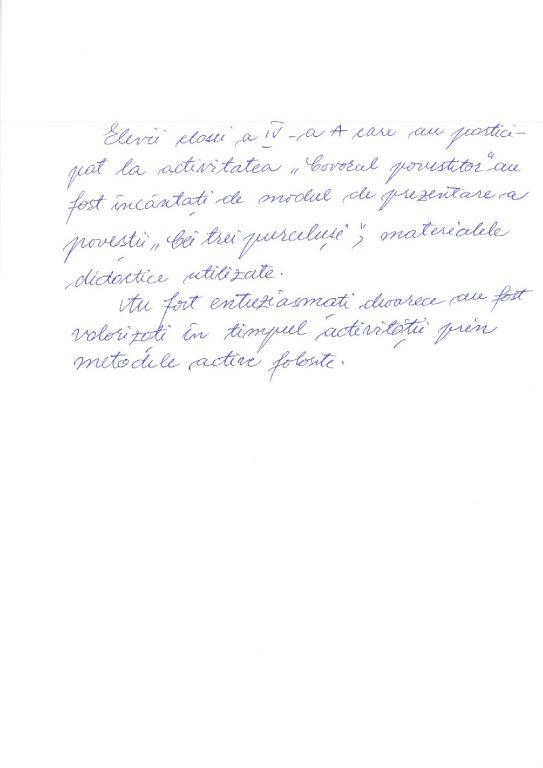 Elevii clasei a IV-a A care au partici-
pat la activitatea „Covorul povestitor" au
fost încântați de modul de prezentare a
povestii „Cei trei purceluși"; materialele
didactice utilizate.
Au fost entuziasmați deoarece au fost
valorizați în timpul activității prin
metodele active folosite.